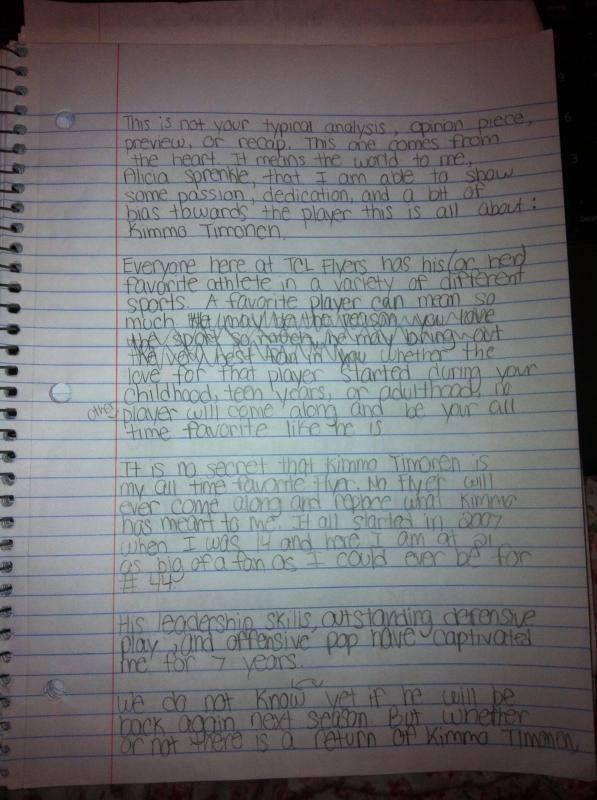 This is not your typical analysis, opinion piece,
preview, or recap. This one comes from
the heart. It means the world to me,
Alicia Sprenkle, that I am able to show
some passion, dedication, and a bit of
bias towards the player this is all about:
Kimmo Timonen.
Everyone here at TCL Flyers has his (or her)
favorite athlete in a variety of different
sports. A favorite player can mean so
much He may be the reason you love
the sport so much, he may bring out
the very best fan in you whether the
love for that player started during your
childhood, teen years, or adulthood, no
other
player will come along and be your all
time favorite like he is
It is no secret that Kimmo Timonen is
my all time favorite Flyer. No Flyer will
ever come along and replace what Kimmo
has meant to me. It all started in 2007
when I was 14 and here I am at 21
as big of a fan as I could ever be for
# 44
His leadership skills, outstanding defensive
play, and offensive pop have captivated
me for 7 years.
We do not know yet if he will be
back again next season. But whether
or not there is a return of Kimmo Timonen,